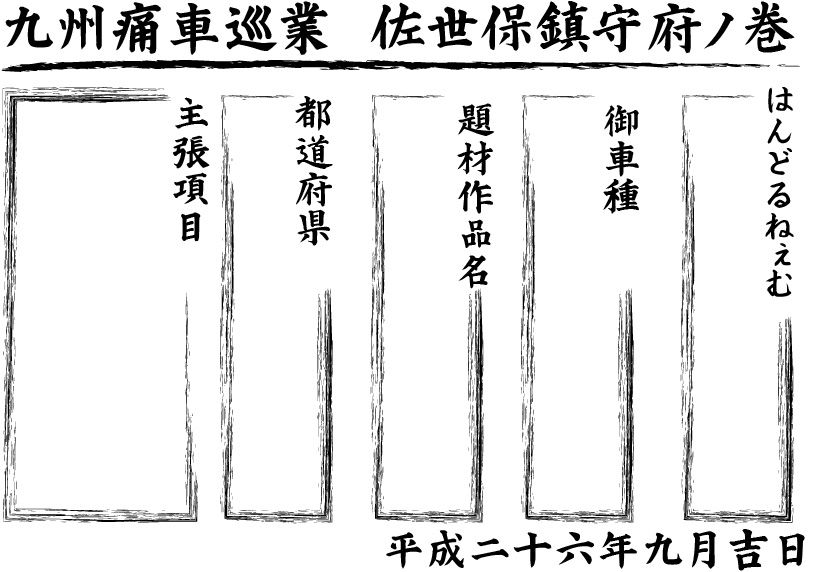 九州痛車巡業 佐世保鎮守府ノ巻
はんどるねぇむ
御車種
題材作品名
都道府県
主張項目
平成二十六年九月吉日